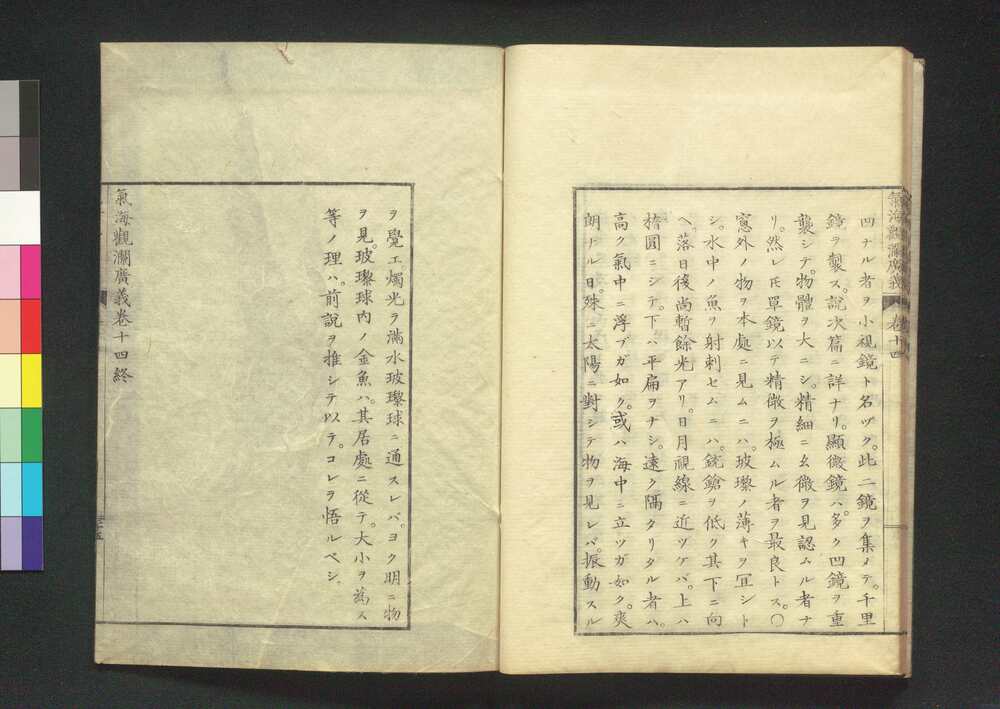 氣海觀瀾廣義 卷十四
凹ナル者ヲ小視鏡ト名ヅク。此二鏡ヲ集メテ。千里
鏡ヲ製ス。說次篇ニ詳ナリ。顯微鏡ハ。多ク凹鏡ヲ重
襲シテ。物體ヲ大ニシ。精細ニ幺微ヲ見認ムル者ナ
リ。然レ𪜈單鏡以テ精微ヲ極ムル者ヲ最良トス。〇
窻外ノ物ヲ本處ニ見ムニハ。玻瓈ノ薄キヲ冝シト
シ。水中ノ魚ヲ射刺セムニハ。銃鎗ヲ低ク其下ニ向
ヘ。落日後尚暫餘光アリ。日月視線ニ近ヅケバ。上ハ
橢圓ニシテ。下ハ平扁ヲナシ。遠ク隔タリタル者ハ。
高ク氣中ニ浮ブガ如ク。或ハ海中ニ立ツガ如ク。爽
朗ナル日。殊ニ太陽ニ對シテ物ヲ見レバ。振動スル
ヲ覺エ燭光ヲ滿水玻瓈球ニ通スレバ。ヨク明ニ物
ヲ見。玻瓈球内ノ金魚ハ。其居處ニ從テ。大小ヲ為ス
等ノ理ハ。前說ヲ推シテ以テ。コレヲ悟ルベシ。
氣海觀瀾廣義卷十四終